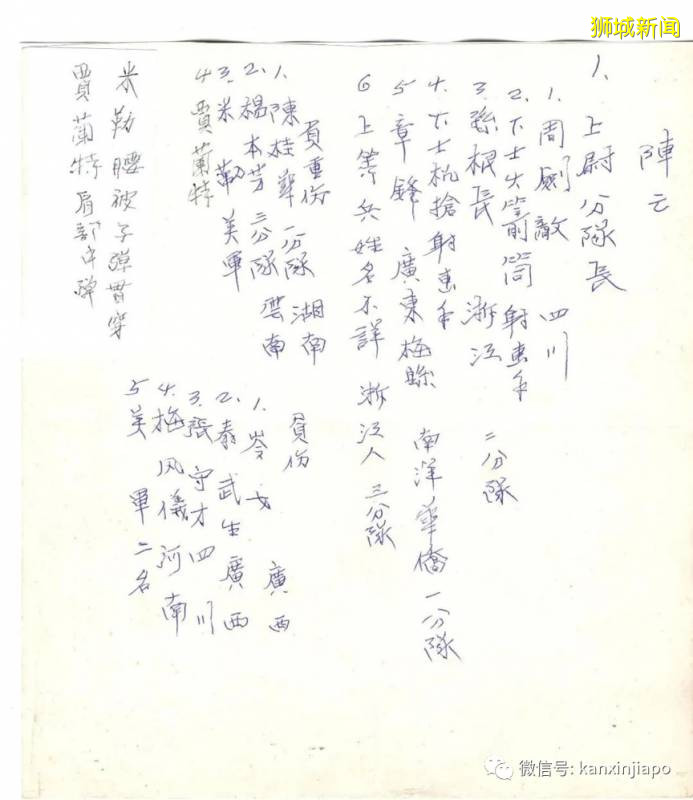 狮城新闻
陣亡
1. 上尉分隊長
1. 周劍敵 四川
2. 下士火箭筒射击手
3. 孫根長 浙江 二分隊
4. 下士机搶射击手
5 章鋒 廣東梅縣 南洋華僑 一分隊
6 上等兵姓名不詳 浙江人 三分隊
負重伤
1. 陳桂華 一分隊 湖南
2. 楊本芳 三分隊 雲南
3. 米勒 美軍
4 賈蘭特
米勒腰被子弹貫穿
賈蘭特肩部中弹
負伤
1. 岑戈 廣西
2. 秦武生 廣西
3. 張守才 四川
4. 梅风儀 河南
5 美軍二名
微信号: kanxinjiapo